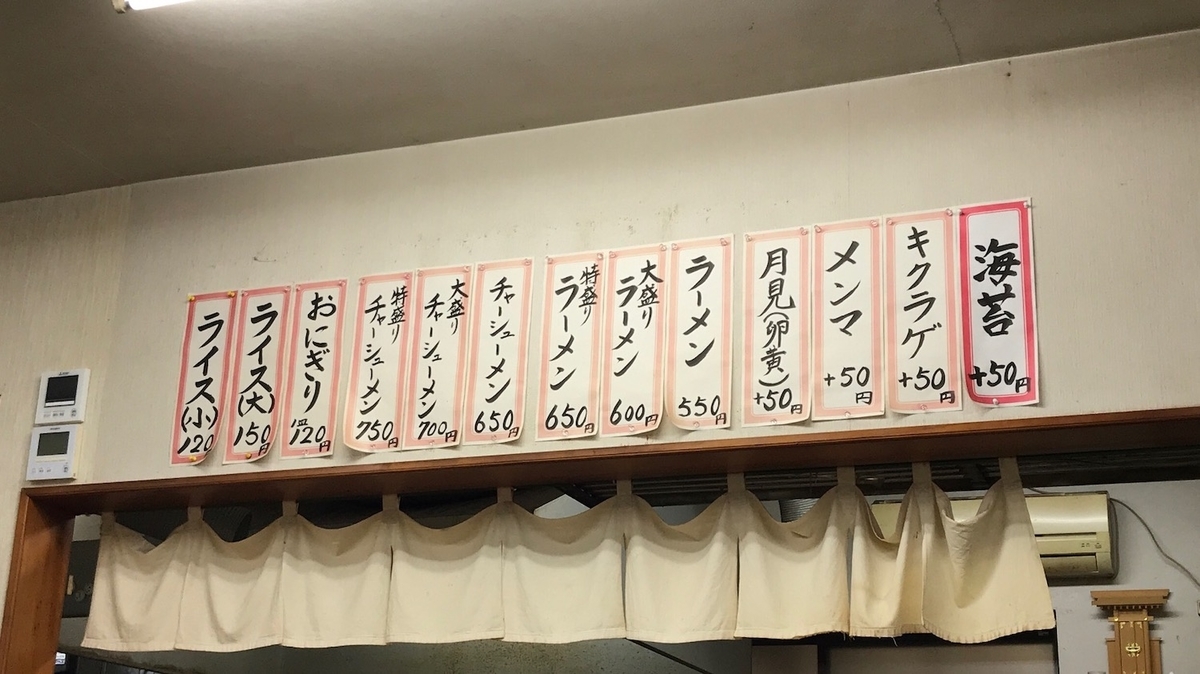 海苔
+50円
キクラゲ
+50円
メンマ
+50円
月見(卵黄)
+50円
ラーメン
550円
大盛り
ラーメン
600円
特盛り
ラーメン
650円
チャーシューメン
650円
大盛り
チャーシューメン
700円
特盛り
チャーシューメン
750円
おにぎり
1個120円
ライス(大)
150円
ライス(小)
120